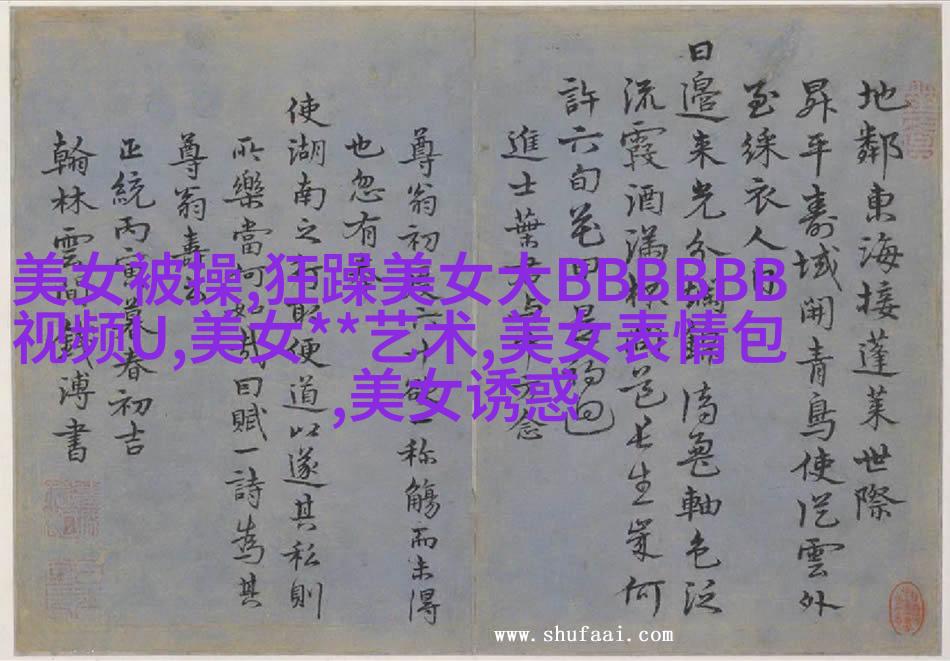 地鄰東海接蓬萊世際
昇平壽域開青鳥使從雲外
至綵衣人
日邊來光分倚龜軸色泛
流霞酒滿杯長生業何
許六旬花甲回
進士葉
尊翁初一称觴而未得
也忽有
使湖南之行取便道以遂其私則
所樂當何如哉因賦一詩為其
尊翁壽云
正統丙寅暮春初吉
翰林雲間錢溥書
美女被操,狂躁美女大BBBBBB
视频U,美女**艺术,美女表情包
,美女诱惑
www.shufaai.com